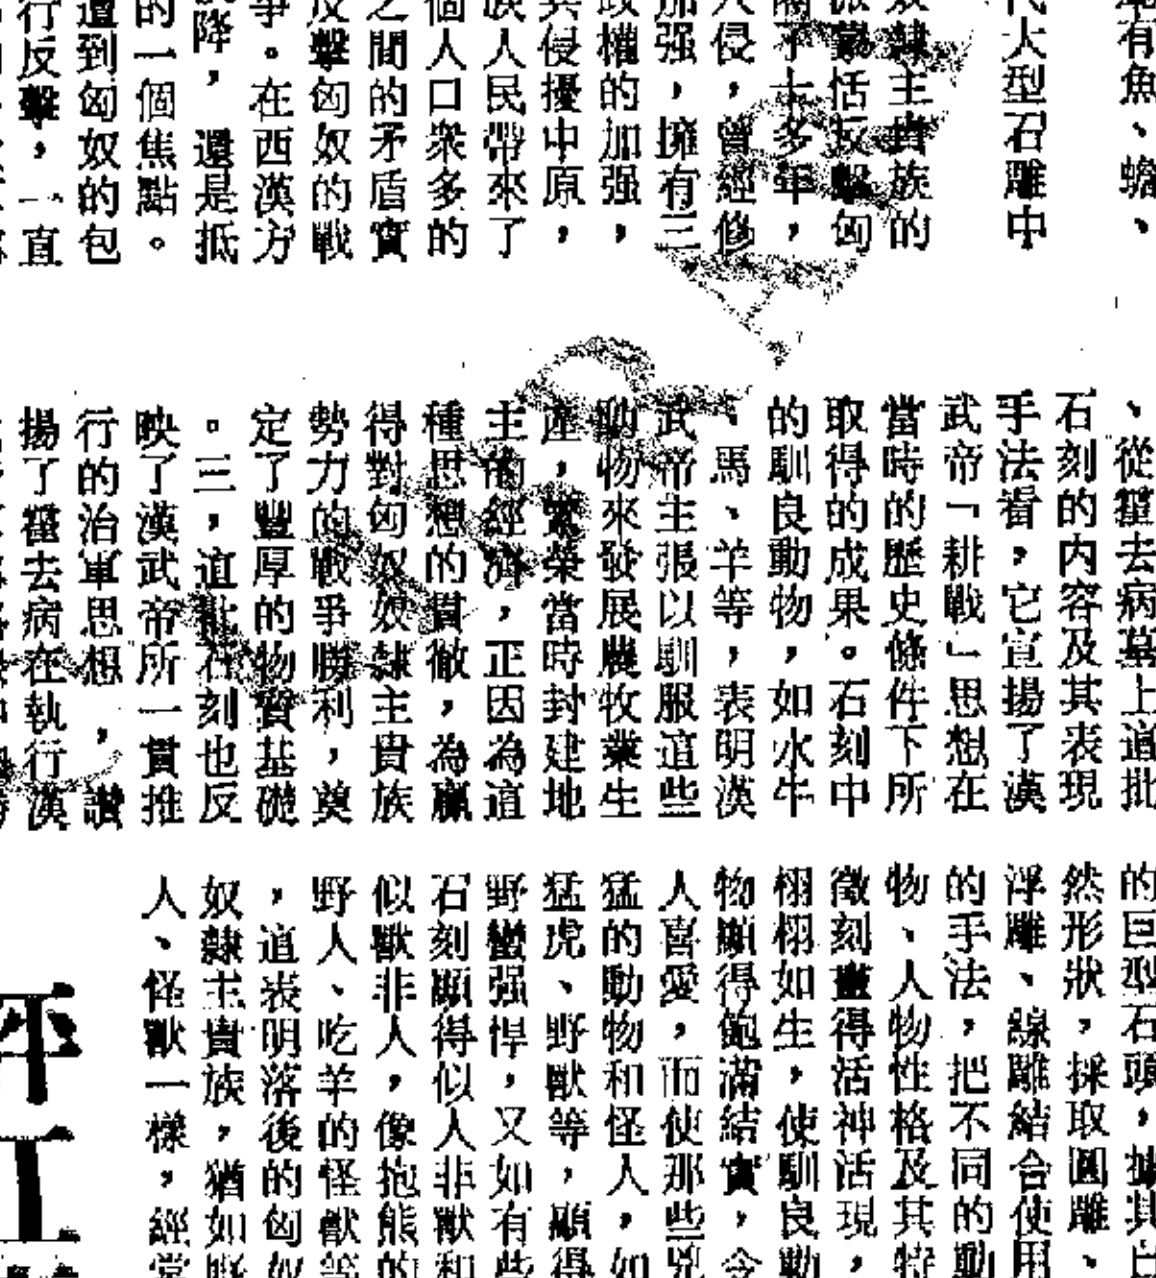 有魚、蟾、
大型石雕中
奴隸主貴族的
派蒙恬反擊匈
十多年,
侵,曾經修
加强,擁有三
政權的加强,
其侵擾中原,
族人民帶來了
個人口衆多的
之間的矛盾實
反擊匈奴的戰
爭。在西漢方
降,還是抵
的一個焦點。
遭到匈奴的包
行反擊,一直
、從霍去病墓上這批
石刻的内容及其表現
手法看,它宣揚了漢
武帝「耕戰」思想在
當時的歷史條件下所
取得的成果。石刻中
的馴良動物,如水牛
、馬、羊等,表明漢
武帝主張以馴服這些
動物來發展農牧業生
產,繁榮當時封建地
主的經濟,正因為這
種思想的貫徹,為贏
得對匈奴奴隸主貴族
勢力的戰爭勝利,奠
定了豐厚的物質基礎
。三,這批石刻也反
映了漢武帝所一貫推
行的治軍思想,讚
揚了霍去病在執行漢
的巨型石頭,據其
然形狀,採取圓雕、
浮雕、線雕結合使用
的手法,把不同的動
物、人物性格及其特
徵刻畫得活神活現,
栩栩如生,使馴良動
物顯得飽滿結實,令
人喜愛,而使那些兇
猛的動物和怪人,如
猛虎、野獸等,顯得
野蠻强悍,又如有些
石刻顯得似人非獸和
似獸非人,像抱熊的
野人、吃羊的怪獸等
,這表明落後的匈奴
奴隸主貴族,猶如野
人、怪獸一樣,經常